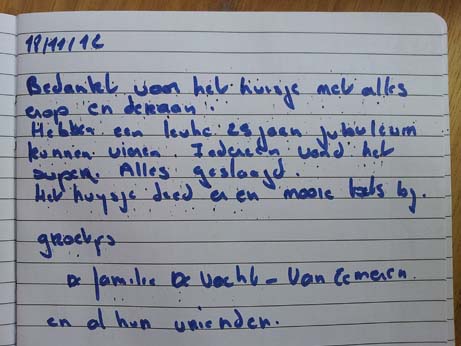 18/11/12
Bedankt voor het huisje met alles
erop en deraan!
Hebben een leuke 25 jaar jubuleum
kunnen vieren. Iedereen vond het
super. Alles geslaagd.
Het huysje deed er en mooie bij.
groetjes
De familie De Vocht - Van Eemeren
en al hun vrienden.